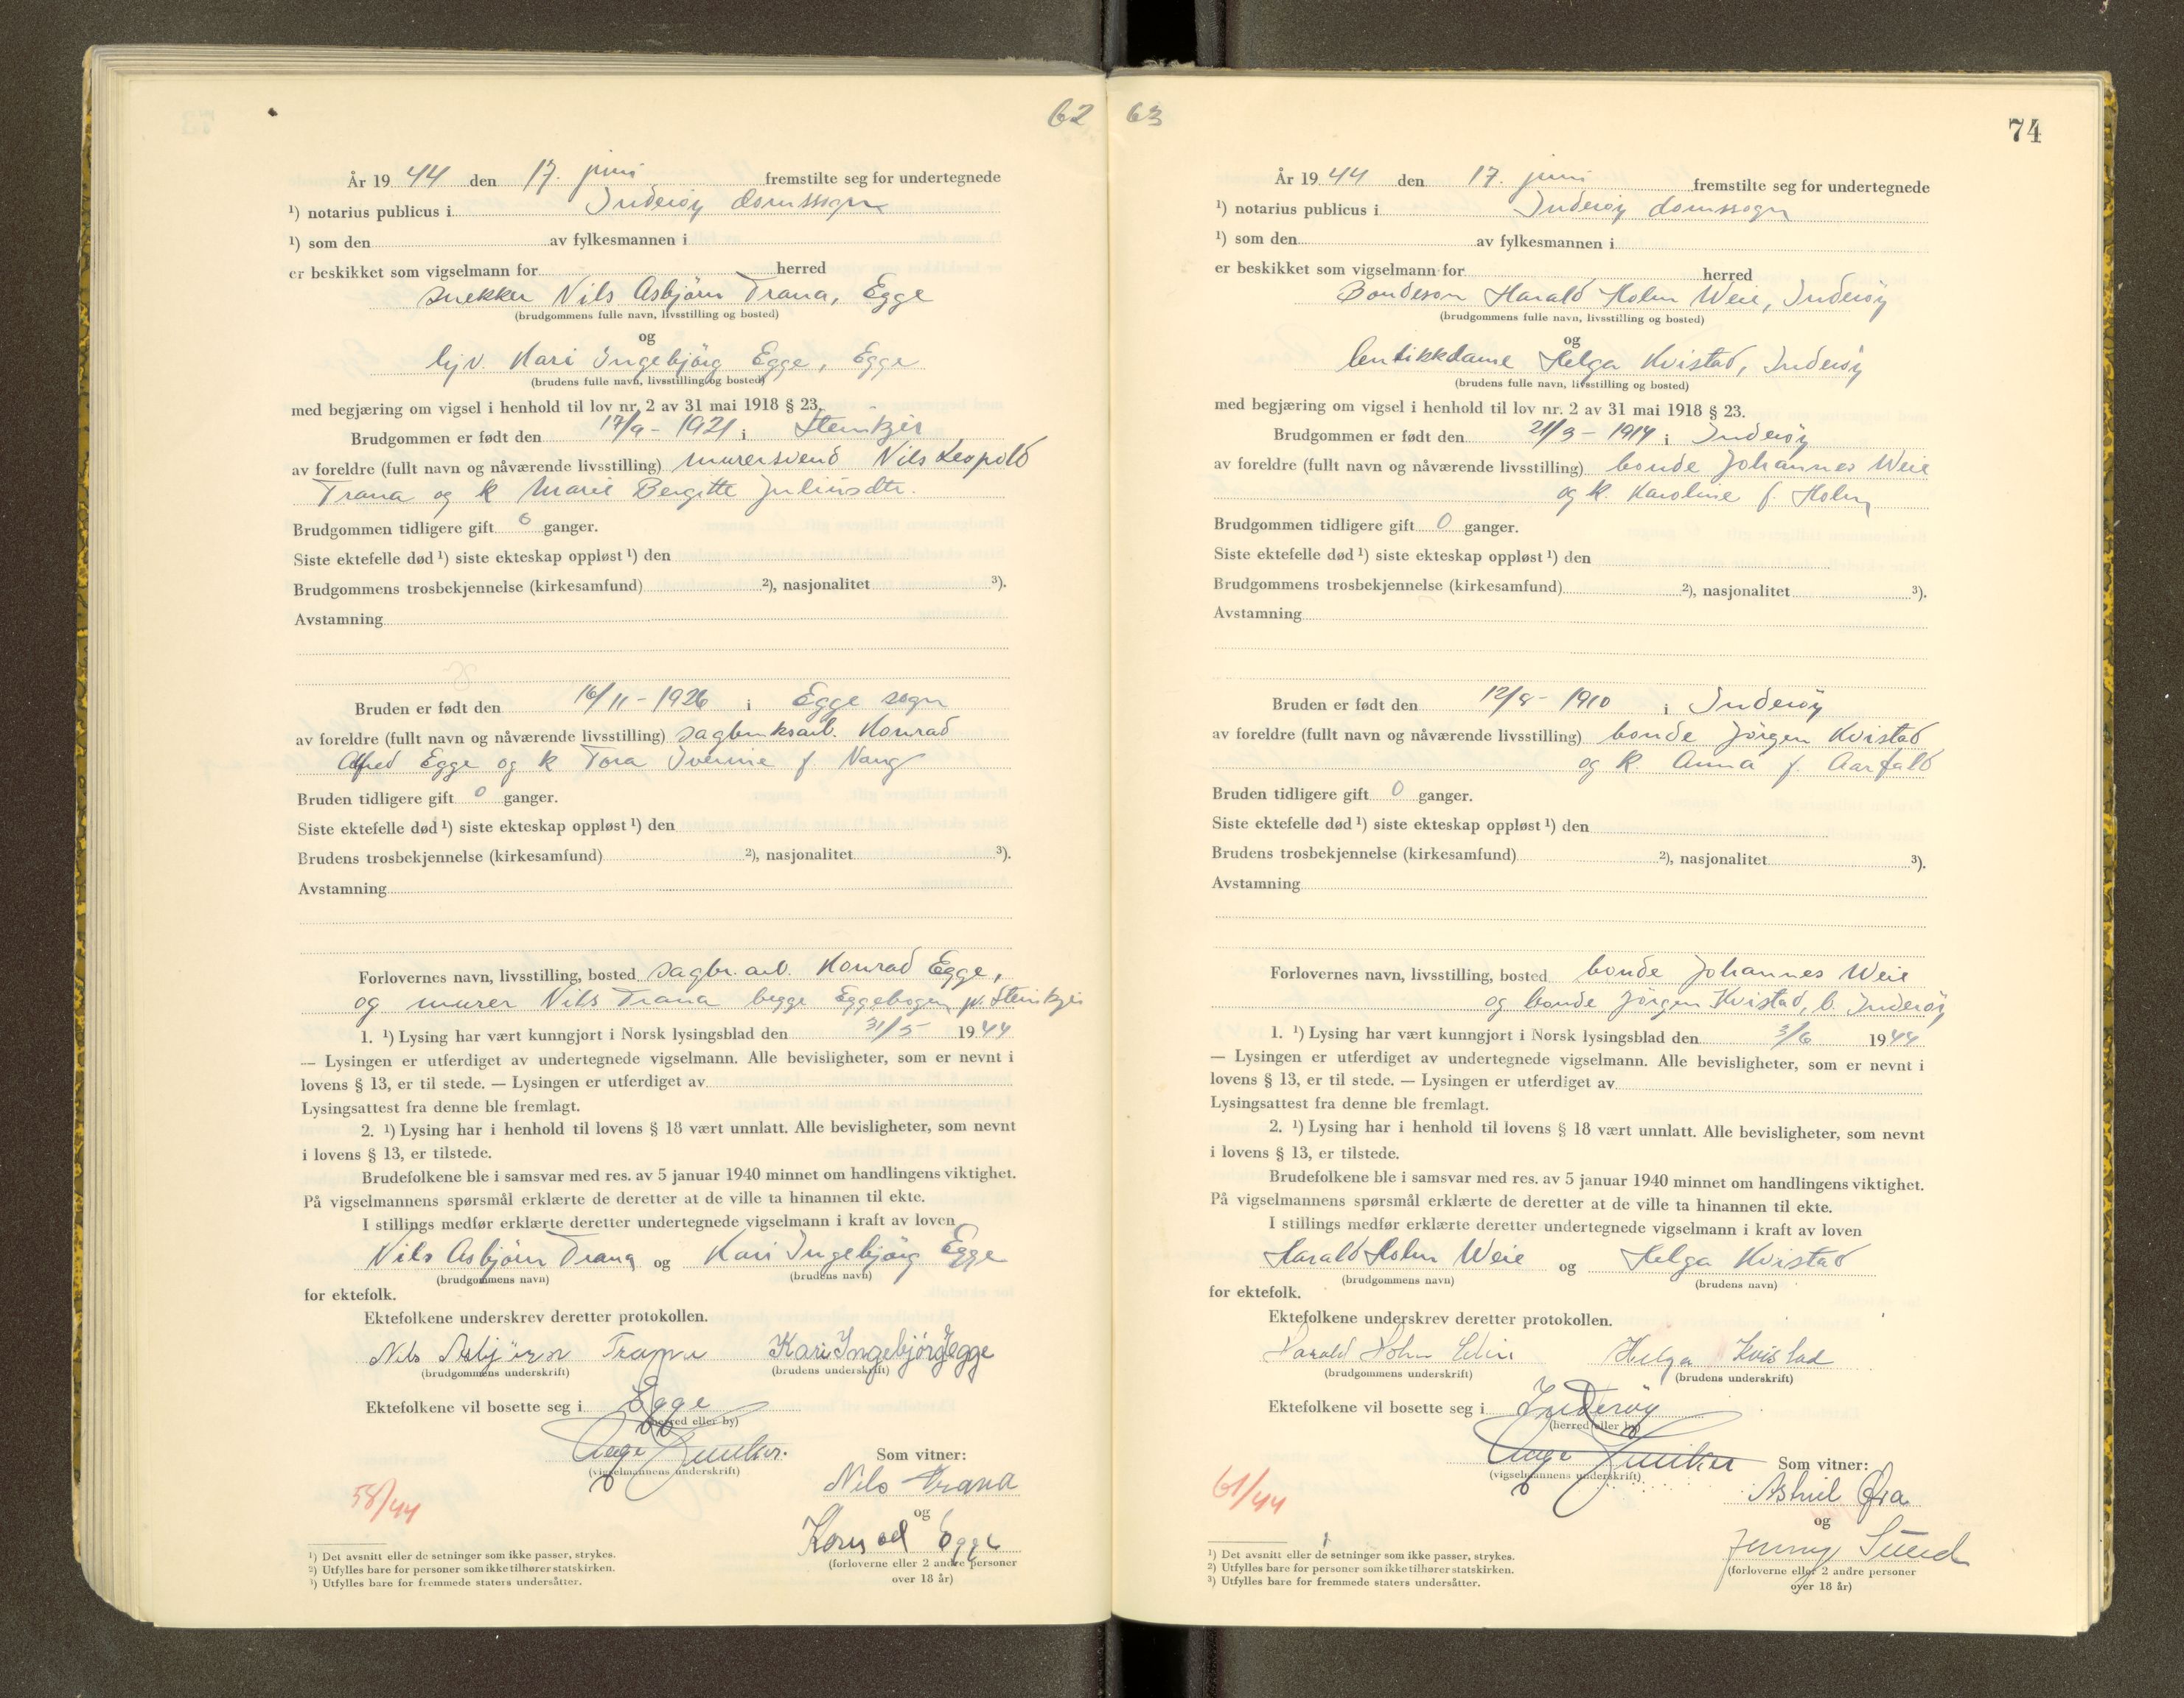 62
År 19 44 den 17. juni fremstilte seg for undertegnede
¹) notarius publicus i Inderøy domssogn
¹) som den av fylkesmannen i
er beskikket som vigselmann for herred
snekker Nils Asbjörn Trana, Egge
(brudgommens fulle navn, livsstilling og bosted)
og
hjv. Kari Ingebjörg Egge, Egge
(brudens fulle navn, livsstilling og bosted)
med begjæring om vigsel i henhold til lov nr. 2 av 31 mai 1918 § 23.
Brudgommen er født den 17/9 - 1921 i Steinkjer
av foreldre (fullt navn og nåværende livsstilling) murersvend Nils Leopold
Trana og k Marie Bergitte Juliusdtr.
Brudgommen tidligere gift 0 ganger.
Siste ektefelle død ¹) siste ekteskap oppløst ¹) den
Brudgommens trosbekjennelse (kirkesamfund) ²), nasjonalitet ³).
Avstamning
Bruden er født den 16/11 - 1926 i Egge sogn
av foreldre (fullt navn og nåværende livsstilling) sagbruksarb. Konrad
Alfred Egge og k Tora Iverine f. Vang
Bruden tidligere gift 0 ganger.
Siste ektefelle død ¹) siste ekteskap oppløst ¹) den
Brudens trosbekjennelse (kirkesamfund) ²), nasjonalitet ³).
Avstamning
Forlovernes navn, livsstilling, bosted sagbr. arb. Konrad Egge,
og murer Nils Trana begge Eggebogen pr. Steinkjer
1. ¹) Lysing har vært kunngjort i Norsk lysingsblad den 31/5 1944
— Lysingen er utferdiget av undertegnede vigselmann. Alle bevisligheter, som er nevnt i
lovens § 13, er til stede. — Lysingen er utferdiget av
Lysingsattest fra denne ble fremlagt.
2. ¹) Lysing har i henhold til lovens § 18 vært unnlatt. Alle bevisligheter, som nevnt
i lovens § 13, er tilstede.
Brudefolkene ble i samsvar med res. av 5 januar 1940 minnet om handlingens viktighet.
På vigselmannens spørsmål erklærte de deretter at de ville ta hinannen til ekte.
I stillings medfør erklærte deretter undertegnede vigselmann i kraft av loven
Nils Asbjörn Trana og Kari Ingebjörg Egge
(brudgommens navn) (brudens navn)
for ektefolk.
Ektefolkene underskrev deretter protokollen.
Nils Asbjörn Trana Kari Ingebjörg Egge
(brudgommens underskrift) (brudens underskrift)
Ektefolkene vil bosette seg i Egge
(herred eller by)
(vigselmannens underskrift)
Som vitner:
Nils Trana
58/44
og
Konrad Egge
(forloverne eller 2 andre personer
over 18 år)
¹) Det avsnitt eller de setninger som ikke passer, strykes.
²) Utfylles bare for personer som ikke tilhører statskirken.
³) Utfylles bare for fremmede staters undersåtter.
63
74
År 19 44 den 17. juni fremstilte seg for undertegnede
¹) notarius publicus i Inderøy domssogn
¹) som den av fylkesmannen i
er beskikket som vigselmann for herred
Bondesøn Harald Holm Weie, Inderöy
(brudgommens fulle navn, livsstilling og bosted)
og
butikkdame Helga Kvistad, Inderöy
(brudens fulle navn, livsstilling og bosted)
med begjæring om vigsel i henhold til lov nr. 2 av 31 mai 1918 § 23.
Brudgommen er født den 21/3 - 1914 i Inderöy
av foreldre (fullt navn og nåværende livsstilling) bonde Johannes Weie
og k Karoline f. Holm
Brudgommen tidligere gift 0 ganger.
Siste ektefelle død ¹) siste ekteskap oppløst ¹) den
Brudgommens trosbekjennelse (kirkesamfund) ²), nasjonalitet ³).
Avstamning
Bruden er født den 12/8 - 1910 i Inderöy
av foreldre (fullt navn og nåværende livsstilling) bonde Jörgen Kvistad
og k Anna f. Aarfald
Bruden tidligere gift 0 ganger.
Siste ektefelle død ¹) siste ekteskap oppløst ¹) den
Brudens trosbekjennelse (kirkesamfund) ²), nasjonalitet ³).
Avstamning
Forlovernes navn, livsstilling, bosted bonde Johannes Weie
og bonde Jörgen Kvistad, b. Inderöy
1. ¹) Lysing har vært kunngjort i Norsk lysingsblad den 3/6 1944
— Lysingen er utferdiget av undertegnede vigselmann. Alle bevisligheter, som er nevnt i
lovens § 13, er til stede. — Lysingen er utferdiget av
Lysingsattest fra denne ble fremlagt.
2. ¹) Lysing har i henhold til lovens § 18 vært unnlatt. Alle bevisligheter, som nevnt
i lovens § 13, er tilstede.
Brudefolkene ble i samsvar med res. av 5 januar 1940 minnet om handlingens viktighet.
På vigselmannens spørsmål erklærte de deretter at de ville ta hinannen til ekte.
I stillings medfør erklærte deretter undertegnede vigselmann i kraft av loven
Harald Holm Weie og Helga Kvistad
(brudgommens navn) (brudens navn)
for ektefolk.
Ektefolkene underskrev deretter protokollen.
Harald Holm Weie Helga Kvistad
(brudgommens underskrift) (brudens underskrift)
Ektefolkene vil bosette seg i Inderöy
(herred eller by)
(vigselmannens underskrift)
Som vitner:
61/44
Øra
og
Jenny Sund
(forloverne eller 2 andre personer
over 18 år)
¹) Det avsnitt eller de setninger som ikke passer, strykes.
²) Utfylles bare for personer som ikke tilhører statskirken.
³) Utfylles bare for fremmede staters undersåtter.